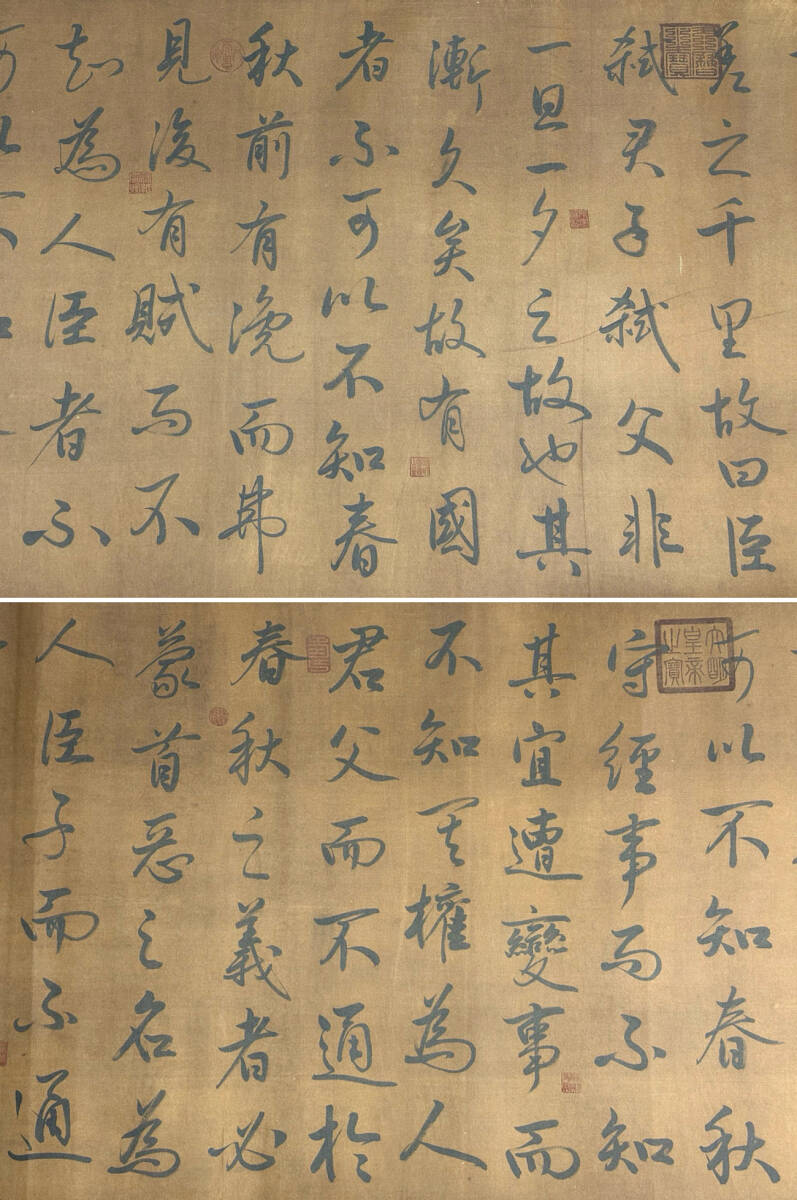 差之千里故曰臣
弑君子弑父非
一旦一夕之故也其
漸久矣故有國
者不可以不知春
秋前有讒而弗
見後有賊而不
知為人臣者不
可以不知春秋
守經事而不知
其宜遭變事而
不知其權為人
君父而不通於
春秋之義者必
蒙首惡之名為
人臣子而不通